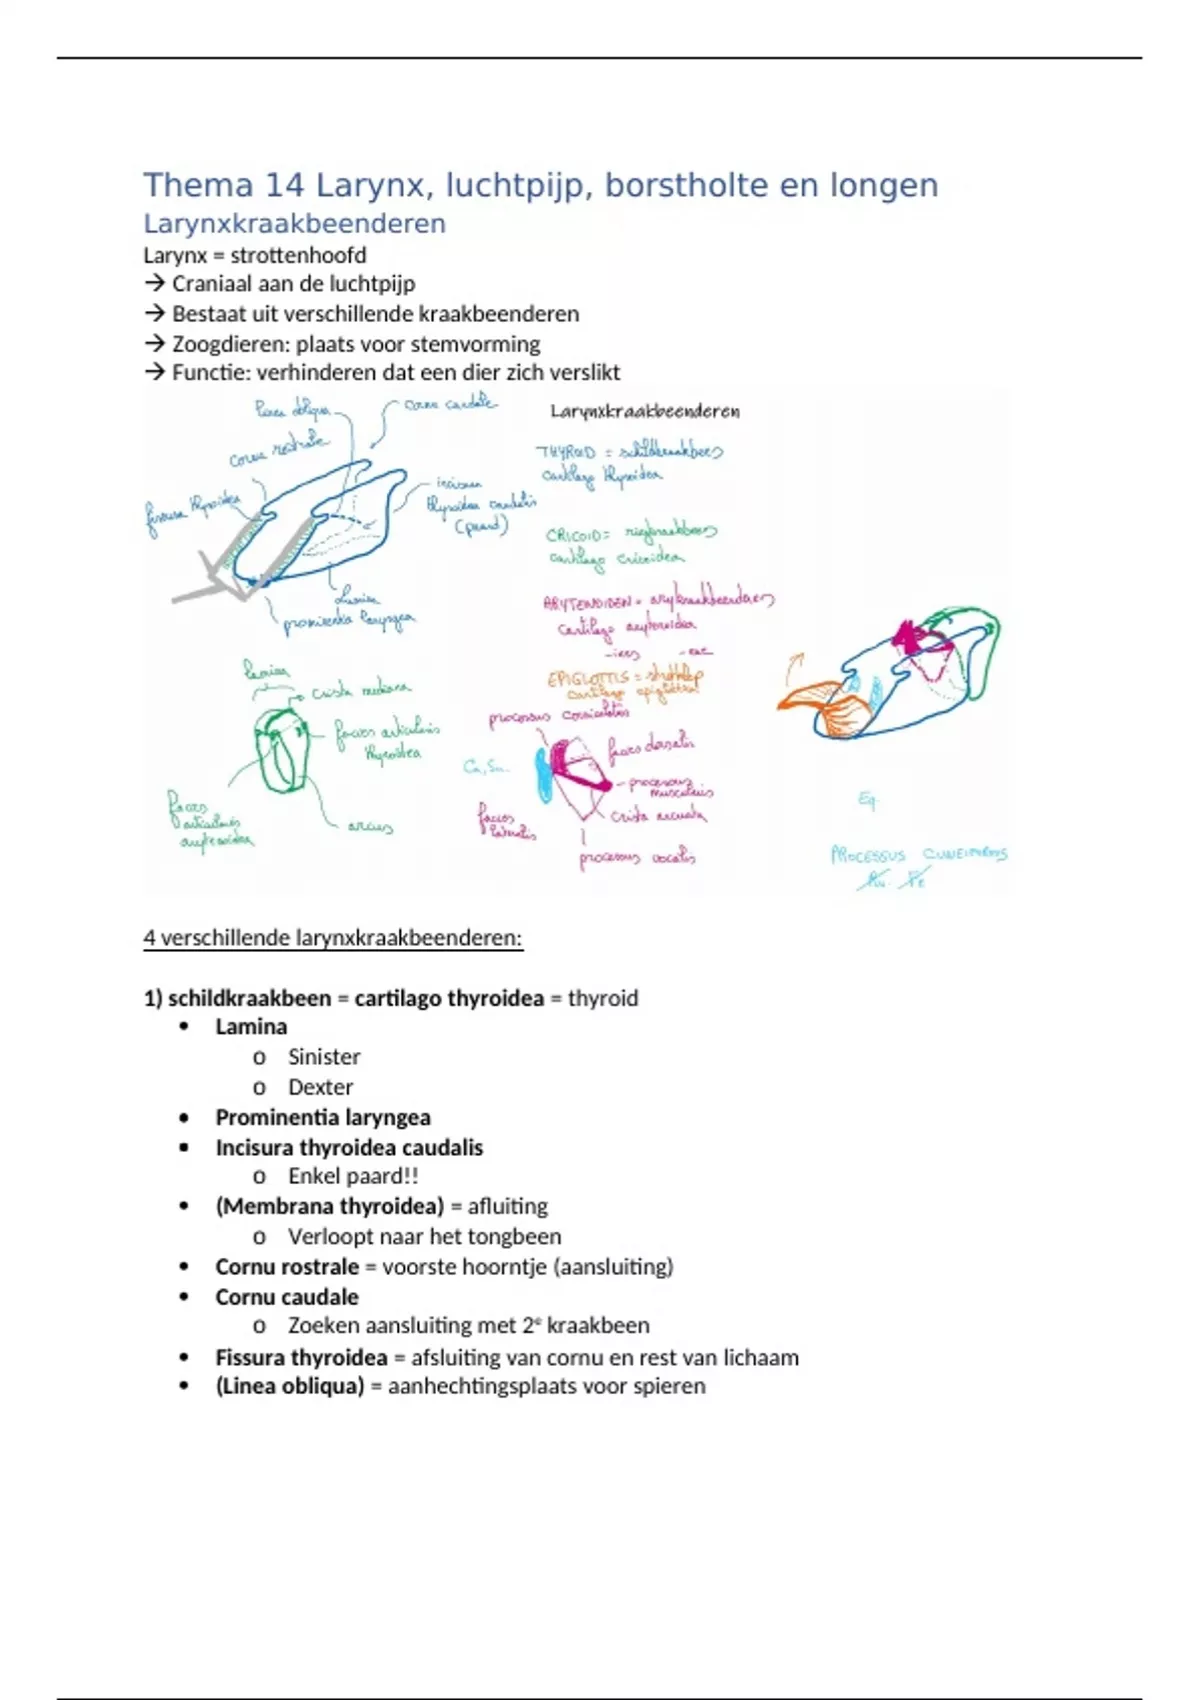 Thema 14 Larynx, luchtpijp, borstholte en longen
Larynxkraakbeenderen
Larynx = strottenhoofd
→ Craniaal aan de luchtpijp
→ Bestaat uit verschillende kraakbeenderen
→ Zoogdieren: plaats voor stemvorming
→ Functie: verhinderen dat een dier zich verslikt
linea obliqua
cornu caudale
cornu rostrale
fissura thyroidea
incisura
thyroidea caudalis
(paard)
lamina
prominentia laryngea
Larynxkraakbeenderen
THYROID = schildkraakbeen
cartilago thyroidea
CRICOID = ringkraakbeen
cartilago cricoidea
ARYTENOIDEN = arykraakbeenderen
cartilago arytenoidea
EPIGLOTTIS = strotklep
cartilago epiglottica
lamina
crista mediana
facies articularis
thyroidea
facies
articularis
arytenoidea
arcus
processus corniculatus
Ca, Su.
facies dorsalis
processus
muscularis
facies
lateralis
crista arcuata
processus vocalis
Eq.
PROCESSUS CUNEIFORMIS
Ru. Fe
4 verschillende larynxkraakbeenderen:
1) schildkraakbeen = cartilago thyroidea = thyroid
• Lamina
o Sinister
o Dexter
• Prominentia laryngea
• Incisura thyroidea caudalis
o Enkel paard!!
• (Membrana thyroidea) = afluiting
o Verloopt naar het tongbeen
• Cornu rostrale = voorste hoorntje (aansluiting)
• Cornu caudale
o Zoeken aansluiting met 2e kraakbeen
• Fissura thyroidea = afsluiting van cornu en rest van lichaam
• (Linea obliqua) = aanhechtingsplaats voor spieren